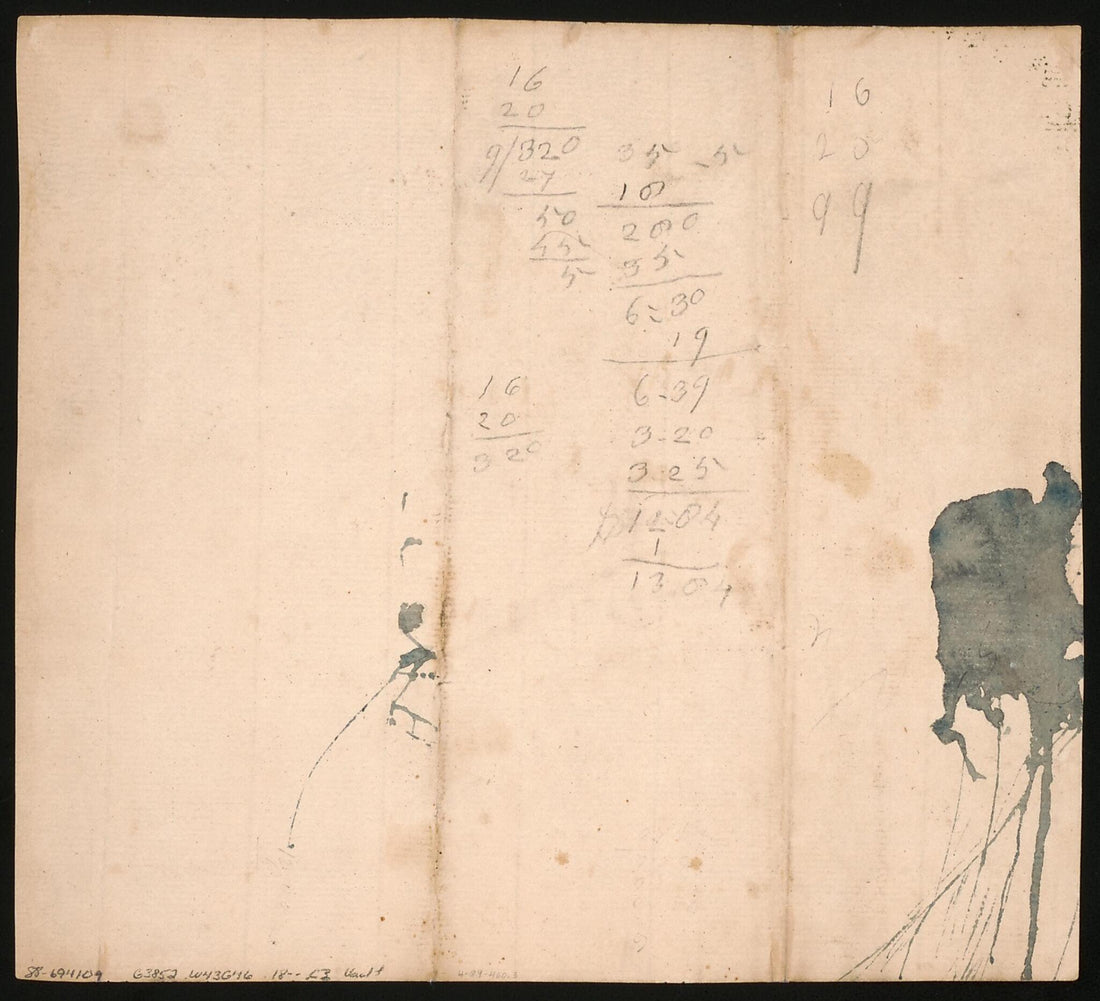 16
20
9/320
27
50
45
5
35 5
18
280
35
6=30
19
6-39
3-20
3-25
12-84
1
13.84
16
20
99
16
20
320
88-694109 G3852 .W43G46 18-- .E3 Vault